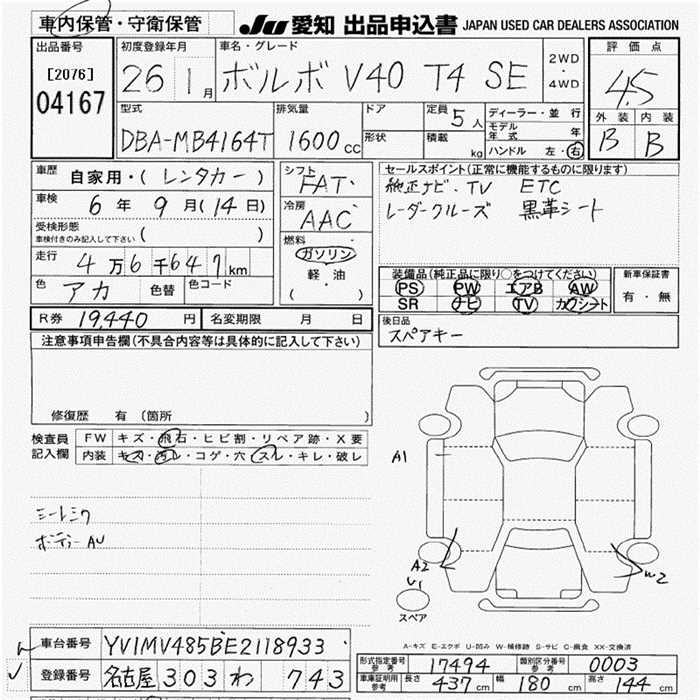 車内保管・守衛保管
JU 愛知 出品申込書 JAPAN USED CAR DEALERS ASSOCIATION
出品番号
[2076]
04167
初度登録年月
26 1月
車名・グレード
ボルボ V40 T4 SE
2WD
・
4WD
評価点
4.5
外装 内装
B B
型式
DBA-MB4164T
排気量
1600cc
ドア
形状
定員 5人
積載 kg
ディーラー・並行
モデル年式 年
ハンドル 左・右
車歴 自家用・(レンタカー)
車検 6年9月(14日)
受検形態
車検付きのみ記入して下さい ( )
走行 4万6千647km
色 アカ 色替 色コード
シフト
FAT
冷房
AAC
燃料
ガソリン
軽・油
( )
セールスポイント(正常に機能するものに限ります)
純正ナビ・TV ETC
レーダークルーズ 黒革シート
装備品(純正品に限り○をつけてください)
PS PW エアB AW
SR ナビ TV カワシート
新車保証書
有・無
R券 19,440円 名変期限 月 日
後日品
スペアキー
注意事項申告欄(不具合内容等は具体的に記入して下さい)
修復歴 有(箇所 )
検査員記入欄
FW キズ・飛石・ヒビ割・リペア跡・X要
内装 キズ・汚レ・コゲ・穴・スレ・キレ・破レ
シートシワ
ボディーAU
A1
A2
U1
W2
スペア
A-キズ E-エクボ U-凹み W-補修跡 S-サビ C-腐食 XX-交換済
車台番号 YV1MV485BE2118933
登録番号 名古屋 303 わ 743
型式指定番号 参考 17494 類別区分番号 参考 0003
車庫証明用 参考 長さ 437cm 幅 180cm 高さ 144cm